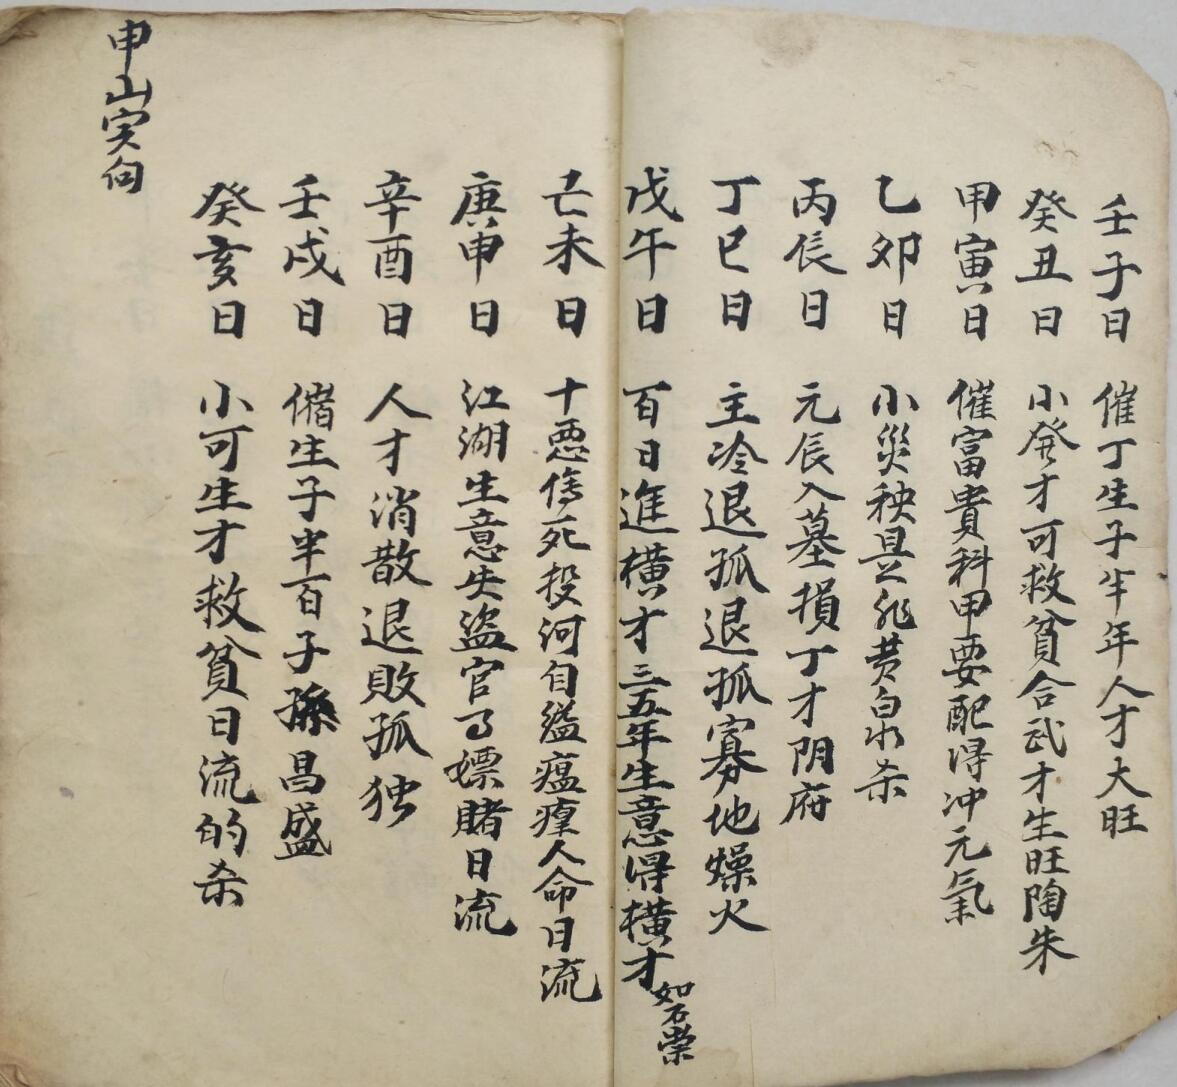 壬子日 催丁生子半年人才大旺
癸丑日 小發才可救貧合武才生旺陶朱
甲寅日 催富貴科甲要配得冲元氣
乙卯日 小災秧是非黄泉水杀
丙辰日 元辰入墓損丁才阴府
丁巳日 主冷退孤退孤寡地燥火
戊午日 百日進横才三五年生意得横才如石崇
己未日 十惡傷死投河自縊瘟㾮人命日流
庚申日 江湖生意失盜官了嫖賭日流
辛酉日 人才消散退敗孤独
壬戌日 催生子半百子孫昌盛
癸亥日 小可生才救貧日流的杀
申山寅向